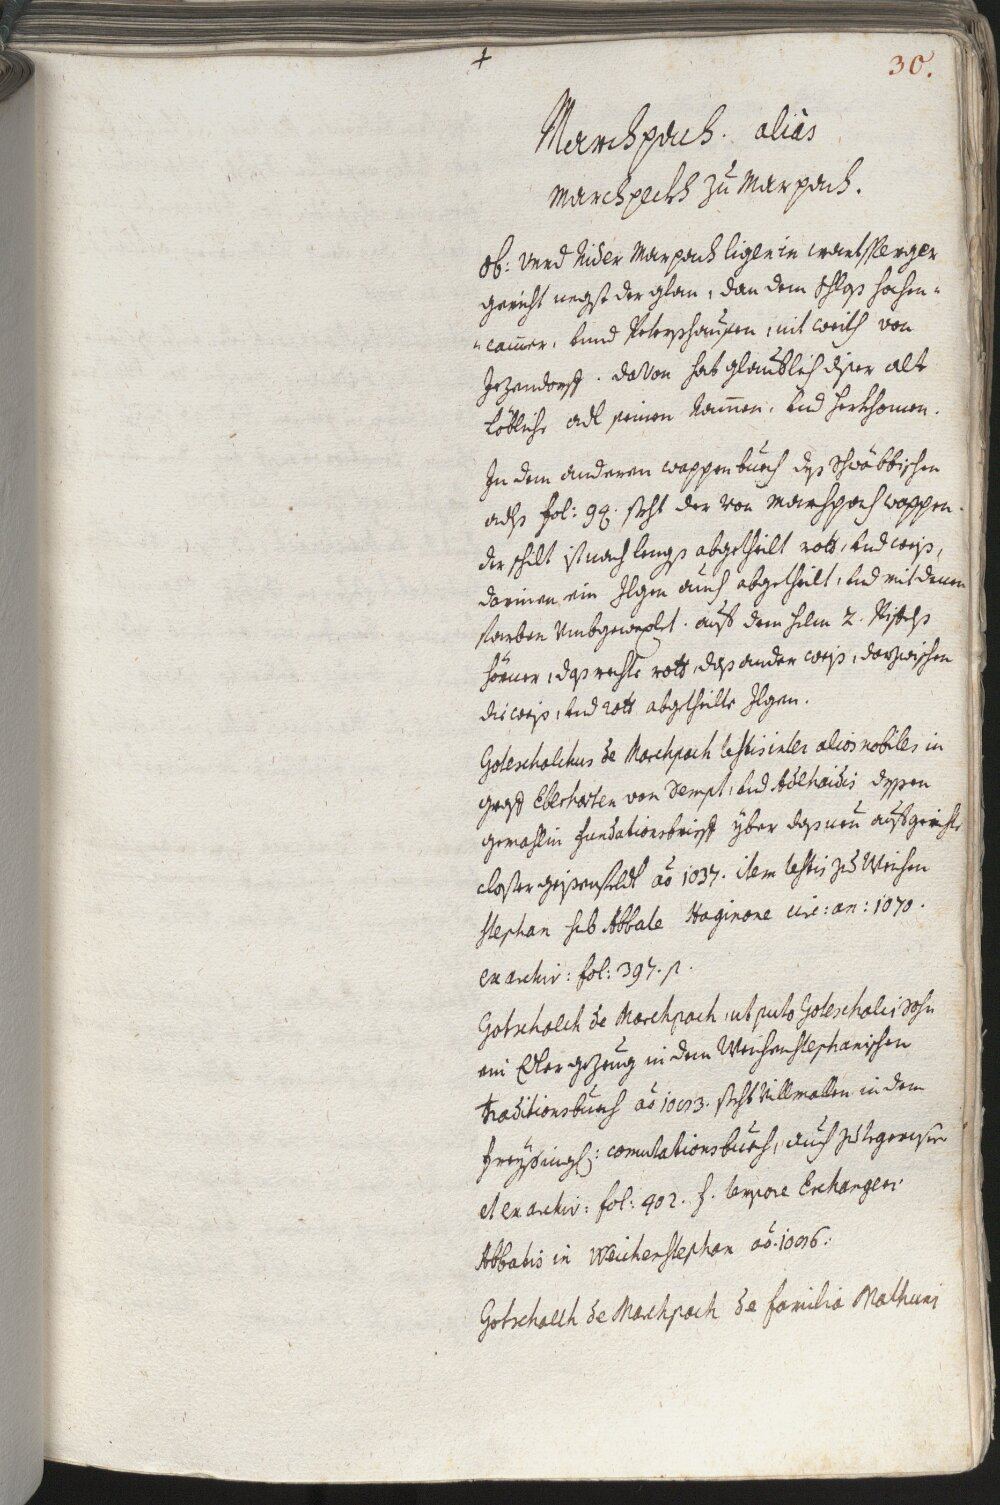 +
30.
Marchpach. alias
Marchpeckh zu Marpach.
Ob: vnnd Nider Marpach ligen in Crantsperger
gericht negst der glan, dan dem schlos Hochen-
-camer, vnnd Petershausen, nit weith von
Jezendorff. davon hat glaublich diser alt
löblich adl seinen Nammen, vnd herkhomen.
In dem anderen wappenbuech des Schwäbischen
adls fol: 94. steht der von Marchpach wappen.
der schilt ist nach lengs abgetheilt rott, vnd weis,
darinen ein Ilgen auch abgetheilt, vnd mit denen
farben vmbgewexlet. auf dem helm 2. Püffels
hörner, das rechte rott, das ander weis, darzwischen
die weis, vnd rott abgetheilte Ilgen.
Goteschalchus de Marchpach testis inter alios nobiles in
graff Eberharten von Sempt, vnd Adelhaidis dessen
gemahlin fundationsbrieff yber das neu aufgerichte
closter geisenfeldt aõ 1037. item testis zu Weichen
stephan sub Abbate Haginone circ: an: 1070.
ex archiv: fol: 397. p.
Gotschalch de Marchpach, ut puto Goteschalci Sohn
ein Edler gezeug in dem Weichenstephanischen
traditionsbuech aõ 1093. steht villmallen in dem
Freysing: comutationsbuech, auch zu Tegernsee
et ex archiv: fol: 402. f. tempore Erchangeri
Abbatis in Weichenstephan aõ. 1096.
Gotschalch de Marchpach de familia Mathuni